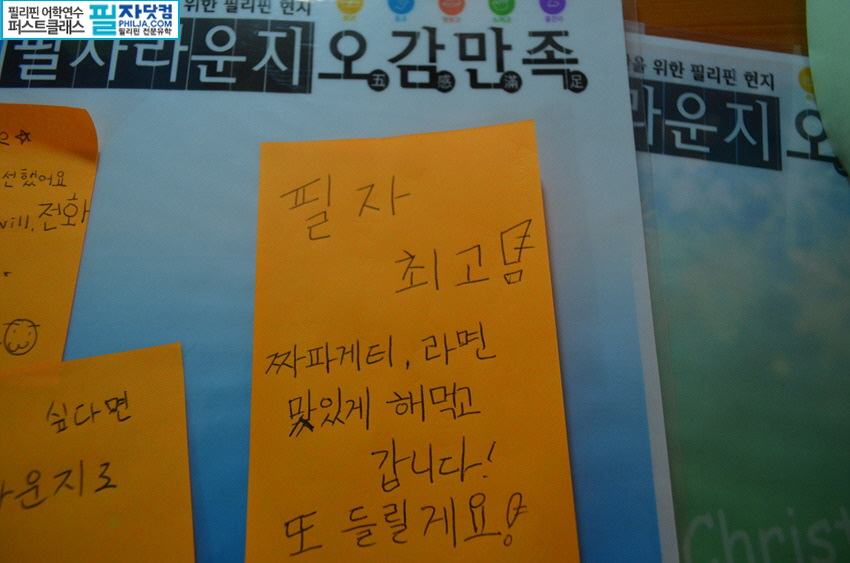 필리핀 어학연수
퍼스트클래스
필자닷컴
PHILJA.COM
필리핀 전문유학
위한 필리핀 현지
필자라운지 오감만족
五 感 滿 足
을 위한 필리핀 현지
라운지 오
선했어요
will, 전화
싶다면
라운지로
필자
최고
짜파게티, 라면
맛있게 해먹고
갑니다!
또 들릴게요!
Christ